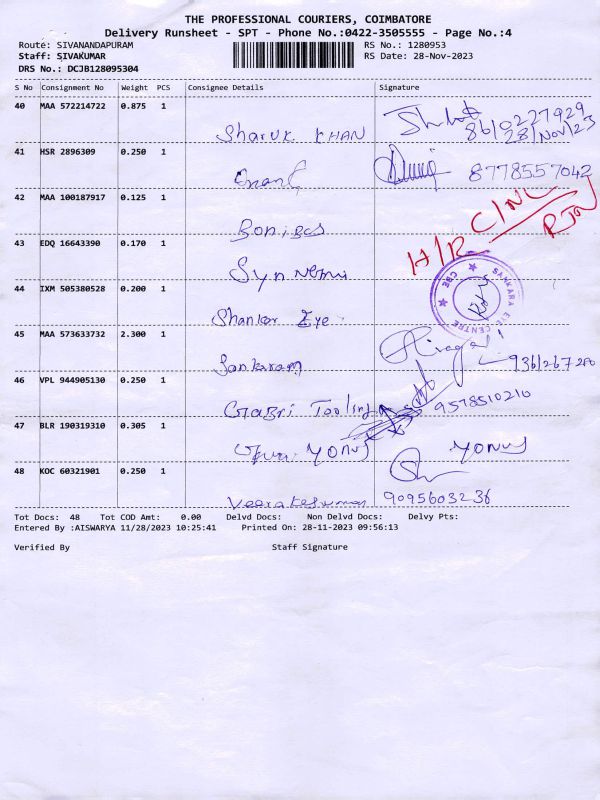 THE PROFESSIONAL COURIERS, COIMBATORE
Delivery Runsheet - SPT - Phone No.:0422-3505555 - Page No.:4
Route: SIVANANDAPURAM
RS No.: 1280953
Staff: SIVAKUMAR
RS Date: 28-Nov-2023
DRS No.: DCJB128095304
S No Consignment No Weight PCS Consignee Details Signature
40 MAA 572214722 0.875 1
8610227929
28/Nov/23
Sharuk KHAN
41 HSR 2896309 0.250 1
8778557042
42 MAA 100187917 0.125 1
C/NL
H/R
43 EDQ 16643390 0.170 1
44 IXM 505380528 0.200 1
SANKARA EYE CENTRE
CBE
Shankar Eye
45 MAA 573633732 2.300 1
Sankaram
46 VPL 944905130 0.250 1
9578510210
Tooling
47 BLR 190319310 0.305 1
YONUS
YONUS
48 KOC 60321901 0.250 1
Veerakesumar 9095603236
Tot Docs: 48 Tot COD Amt: 0.00 Delvd Docs: Non Delvd Docs: Delvy Pts:
Entered By :AISWARYA 11/28/2023 10:25:41 Printed On: 28-11-2023 09:56:13
Verified By Staff Signature